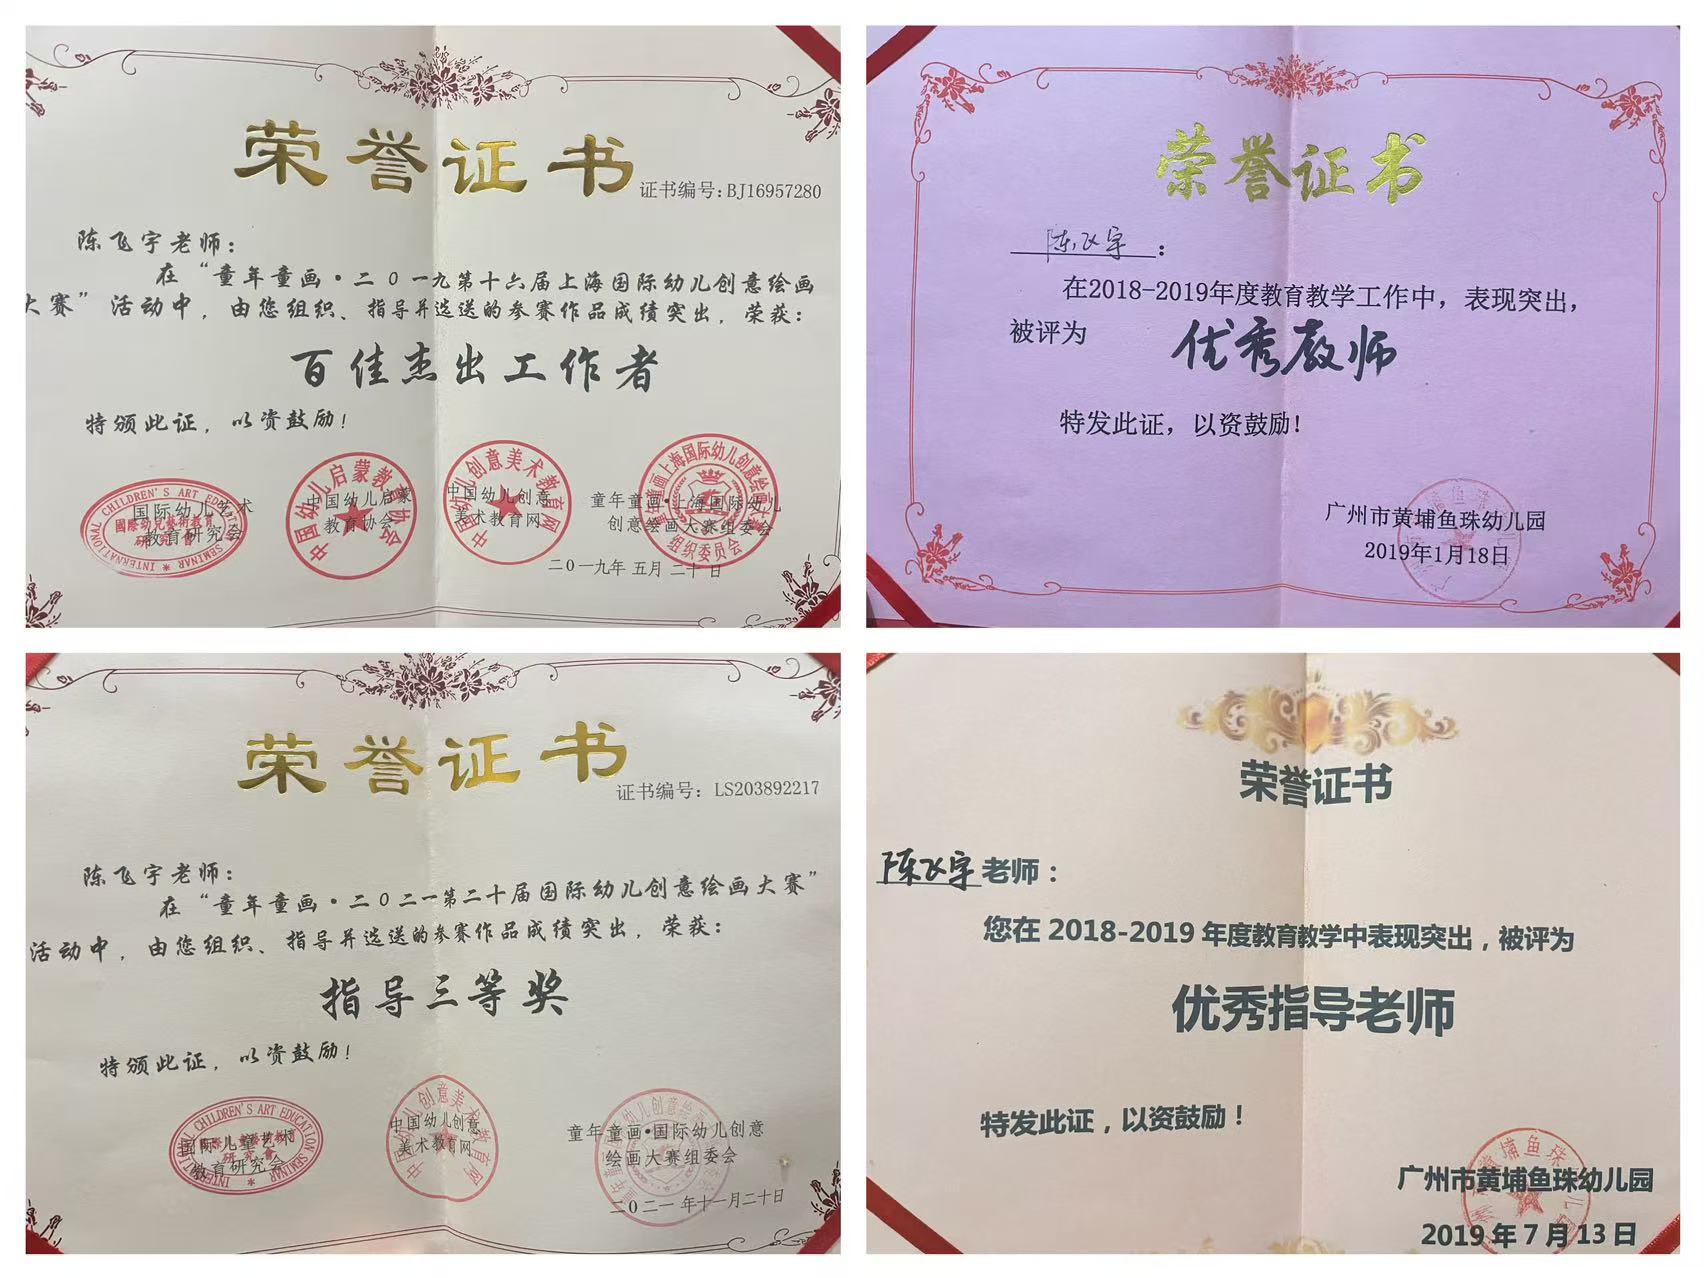 荣誉证书
证书编号:BJ16957280
陈飞宇老师：
在“童年童画·二0一九第十六届上海国际幼儿创意绘画
大赛”活动中，由您组织、指导并选送的参赛作品成绩突出，荣获：
百佳杰出工作者
特颁此证，以资鼓励！
INTERNATIONAL CHILDREN'S ART EDUCATION SEMINAR
國際幼兒藝術教育
研究會
国际幼儿艺术
教育研究会
中国幼儿启蒙教育协会
中国幼儿启蒙
教育协会
中国幼儿创意美术教育网
中国幼儿创意
美术教育网
童年童画上海国际幼儿创意绘画大赛
组织委员会
童年童画·上海国际幼儿
创意绘画大赛组委会
二0一九年五月二十日
荣誉证书
陈飞宇：
在2018-2019年度教育教学工作中，表现突出，
被评为 优秀教师
特发此证，以资鼓励！
广州市黄埔鱼珠幼儿园
2019年1月18日
荣誉证书
证书编号：LS203892217
陈飞宇老师：
在“童年童画·二0二一第二十届国际幼儿创意绘画大赛”
活动中，由您组织、指导并选送的参赛作品成绩突出，荣获：
指导三等奖
特颁此证，以资鼓励！
INTERNATIONAL CHILDREN'S ART EDUCATION SEMINAR
国际儿童艺术
教育研究会
中国幼儿创意美术教育网
中国幼儿创意
美术教育网
童年童画·国际幼儿创意
绘画大赛组委会
二0二一年十一月二十日
荣誉证书
陈飞宇老师：
您在 2018-2019 年度教育教学中表现突出，被评为
优秀指导老师
特发此证，以资鼓励！
广州市黄埔鱼珠幼儿园
2019 年 7 月 13 日